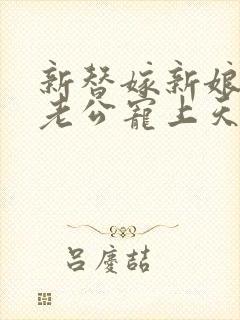 新替嫁新娘
老公宠上天
吕慶喆